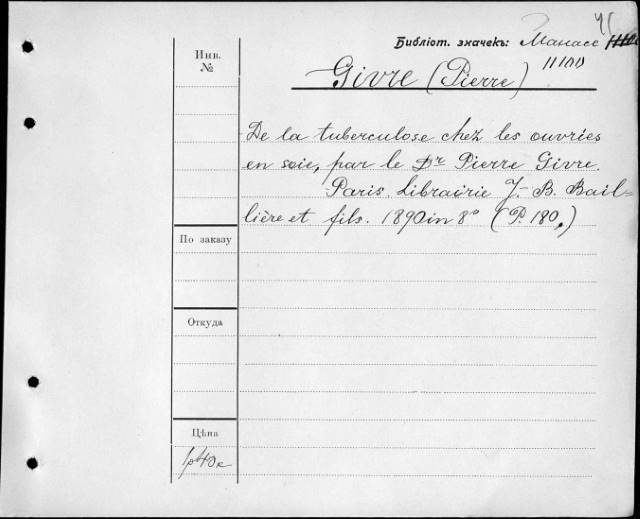 Библіот. значекъ: Манасс
11100
Инв.
№
Givre (Pierre)
De la tuberculose chez les ouvriés
en soie, par le Dr Pierre Givre.
Paris. Librairie J.-B. Bail-
lière et fils. 1890 in 8° (P. 180,)
По заказу
Откуда
Цѣна
1р40к